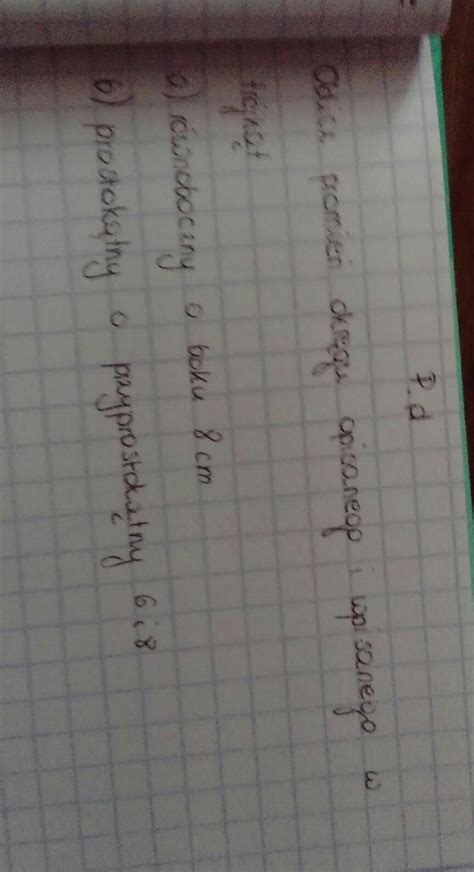 P.d
Oblicz promień okręgu opisanego i wpisanego w
trójkąt
a) równoboczny o boku 8 cm
b) prostokątny o przyprostokątny 6 i 8